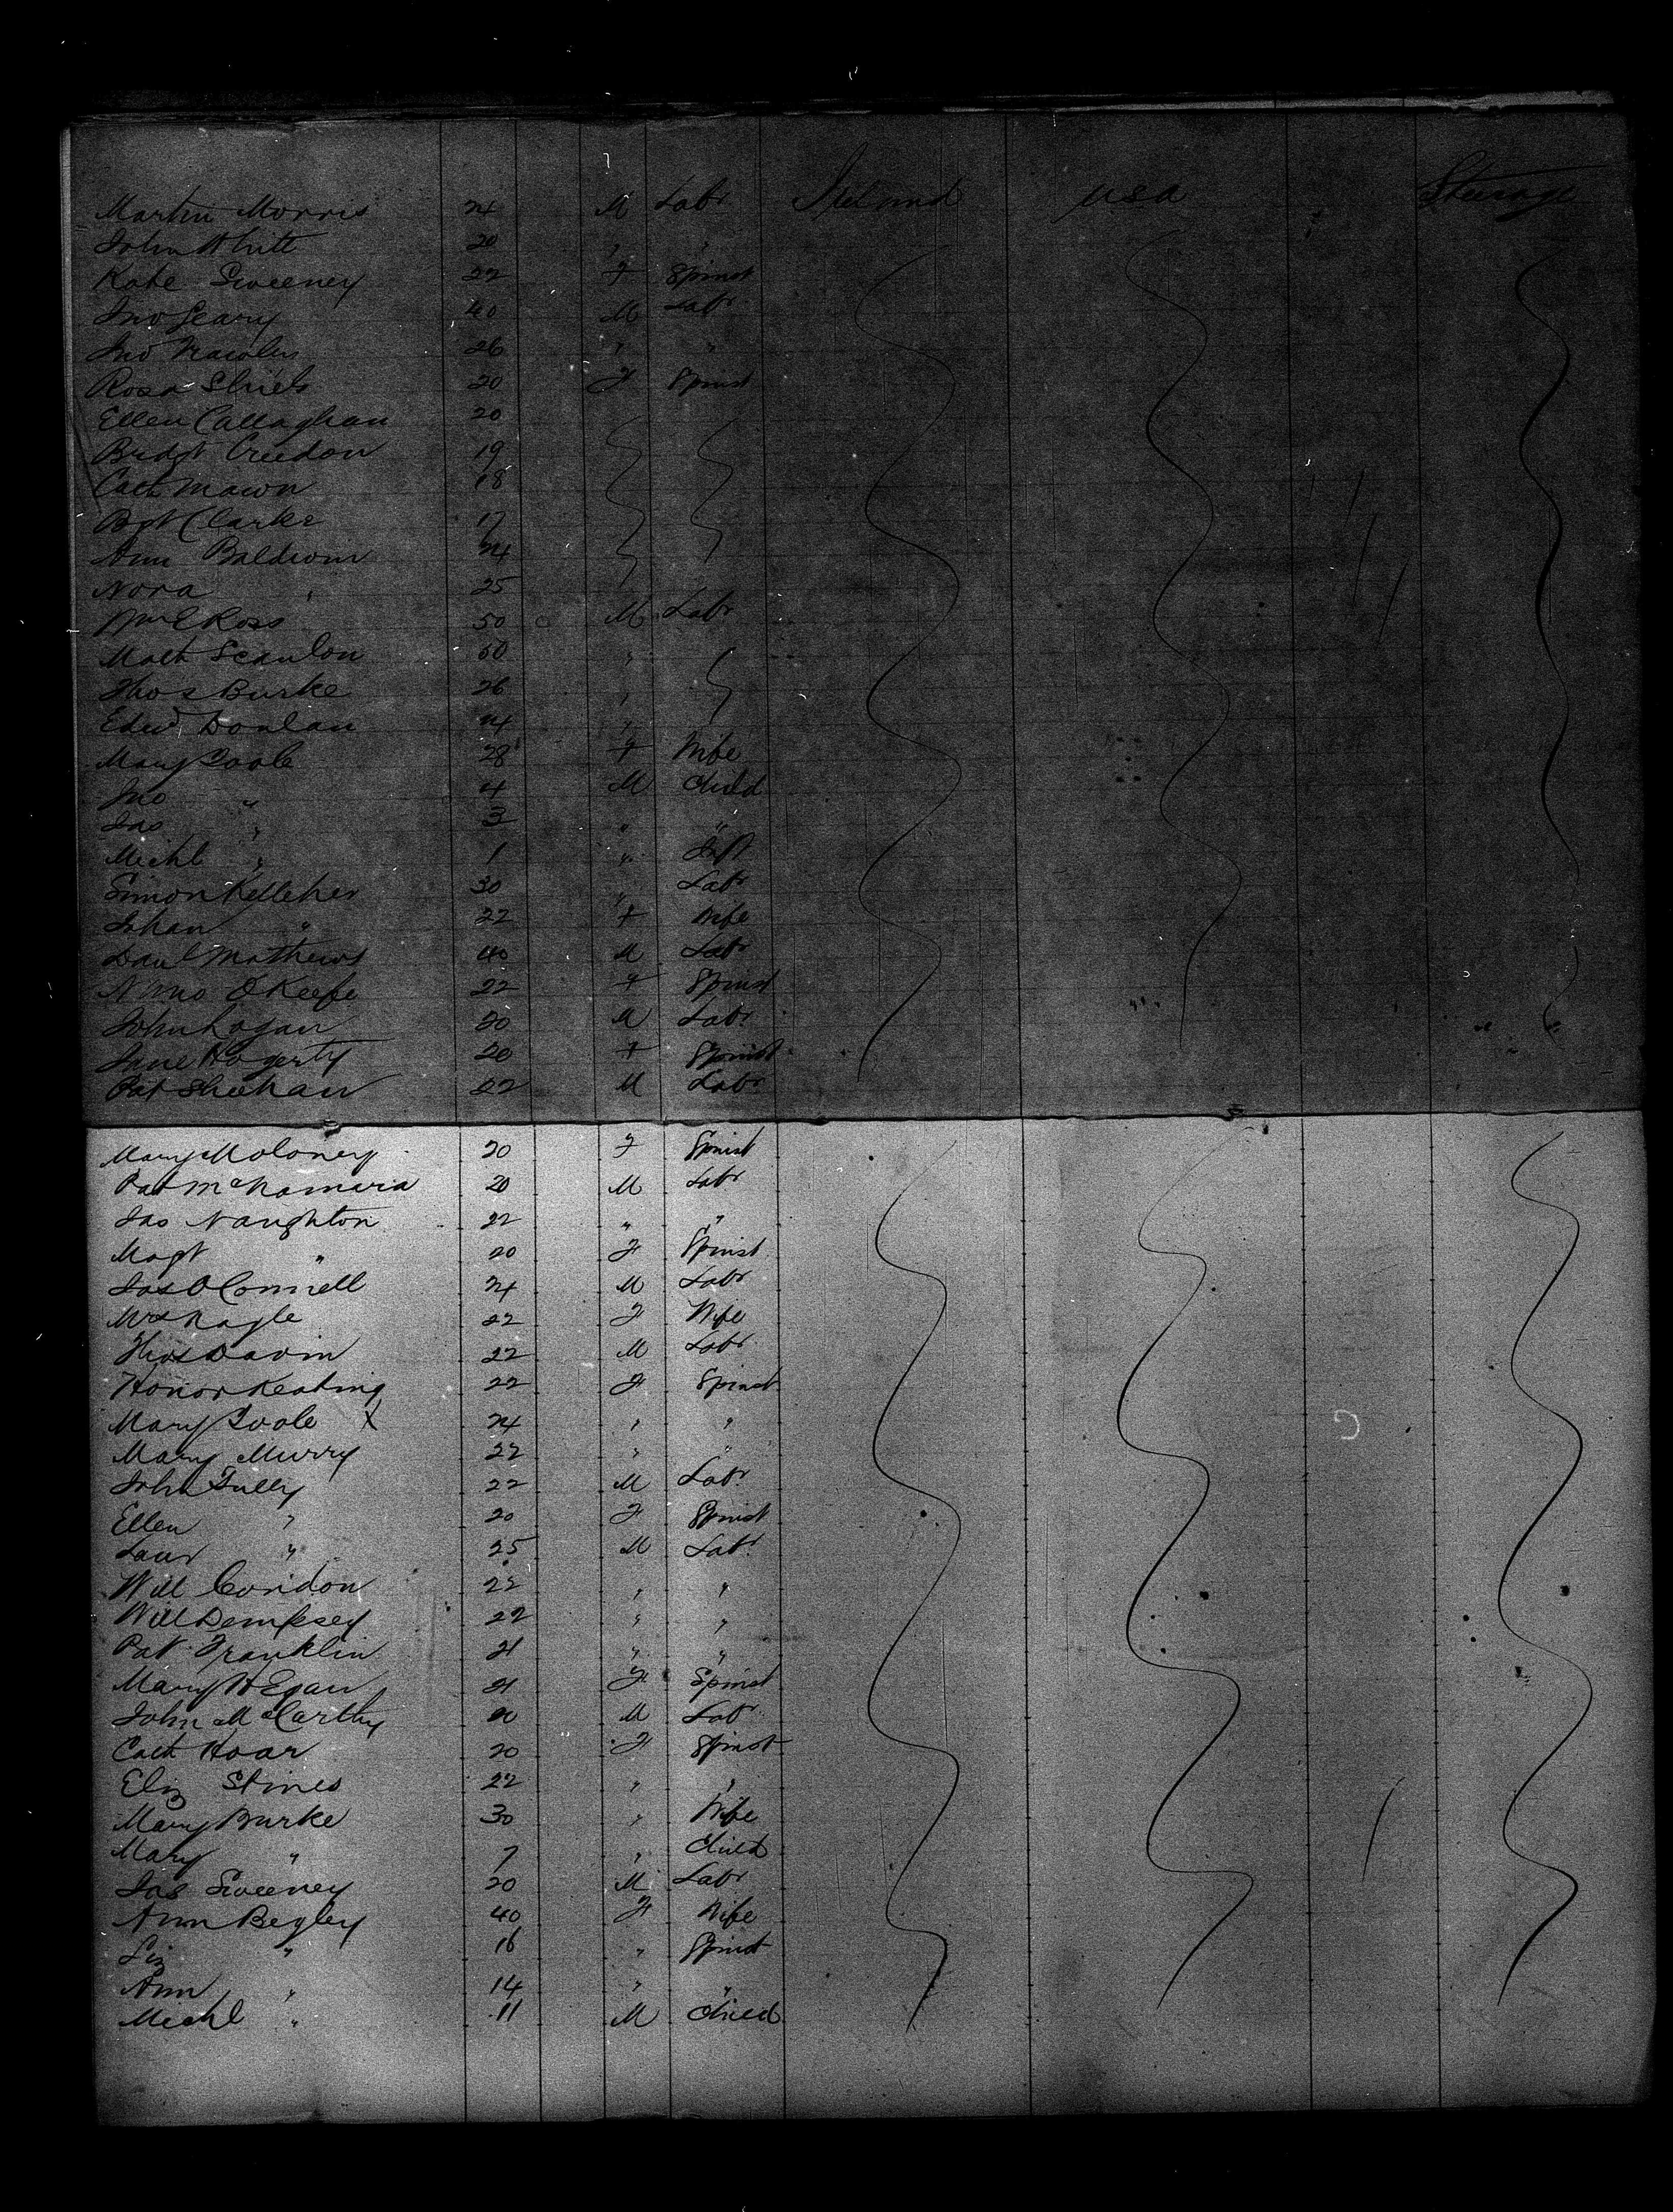 Martin Morris 24 M Labr Ireland USA Steerage
John Whitt 20 " "
Kate Sweeney 22 F Spinst
Jno Leary 40 M Labr
Jno 26 " "
Rosa Shiels 20 F Spinst
Ellen Callaghan 20
Bridgt Creedon 19
Cath Mawn 18
Bgt Clarke 17
Ann Baldwin 24
Nora " 25
Wm E Ross 50 M Labr
Math Scanlon 50 "
Thos Burke 26 "
Edwd Donlan 24 "
Mary Toole 28 F Wife
Jno " 4 M Child
Jas " 3 " "
Michl " 1 " Inft
Simon Kelleher 30 " Labr
Johan " 22 F Wife
Danl Mathews 40 M Labr
Nano O'Keefe 22 F Spinst
John Logan 20 M Labr
Jane Hogerty 20 F Spinst
Pat Sheehan 22 M Labr
Mary Moloney 20 F Spinst
Pat McNamara 20 M Labr
Jas Naughton 22 " "
Magt " 20 F Spinst
Jas O'Connell 24 M Labr
Mrs Nagle 22 F Wife
Thos Davin 22 M Labr
Honor Keating 22 F Spinst
Mary Toole X 24 " "
Mary Murry 22 " "
John Tully 22 M Labr
Ellen " 20 F Spinst
Laur " 25 M Labr
Will Condon 22 " "
Will Dempsey 22 " "
Pat Franklin 21 " "
Mary H Egan 21 F Spinst
John McCarthy 20 M Labr
Cath Hoar 20 F Spinst
Eliz Stines 22 " "
Mary Burke 30 " Wife
Mary " 7 " Child
Jas Sweeney 20 M Labr
Ann Begley 40 F Wife
Liz " 16 " Spinst
Ann " 14 " "
Michl " 11 M Child